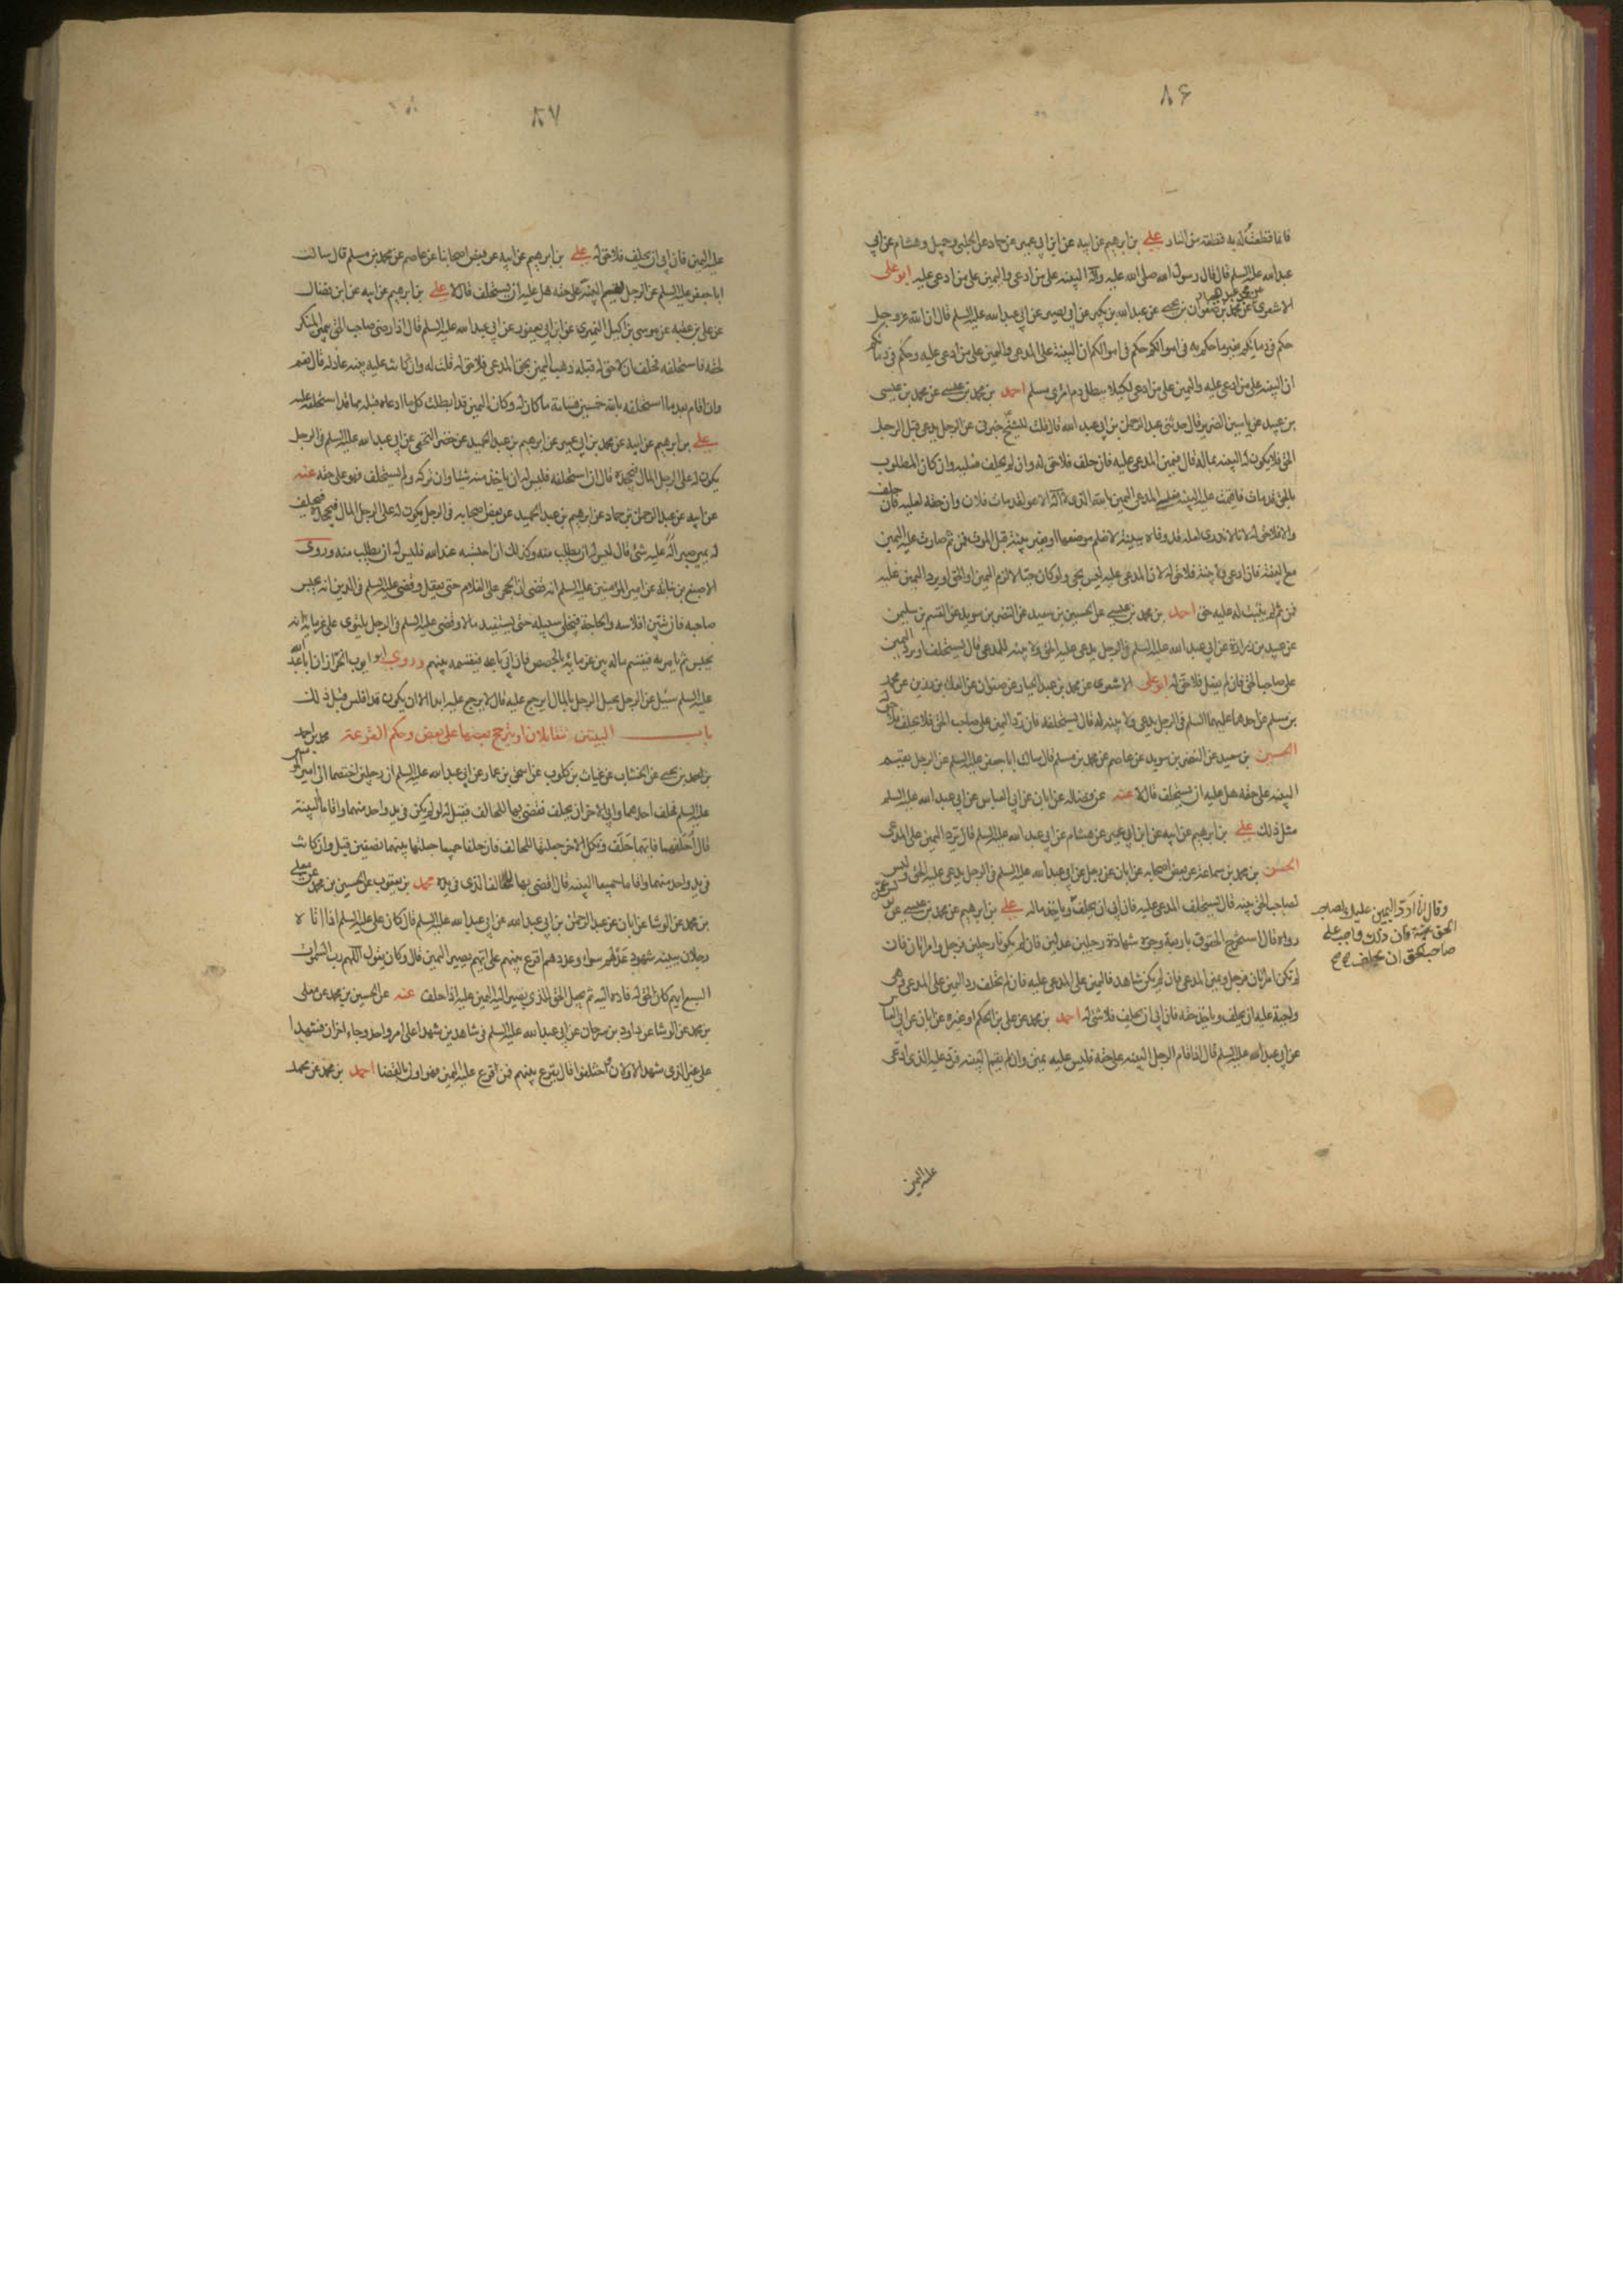 ٨۶
فانما قطعت له به قطعة من النار علي بن ابرهيم عن ابيه عن ابن ابي عمير عن حماد عن الحلبي وجميل وهشام عن ابي
عبد الله عليه السلم قال قال رسول الله صلى الله عليه وآله البينة على من ادعى واليمين على من ادعي عليه ابو علي
الاشعري عن محمد بن عبد الجبار عن صفوان بن يحيى عن عبد الله بن بكير عن ابي بصير عن ابي عبد الله عليه السلم قال ان الله عز وجل
حكم في دمائكم بغير ما حكم به في اموالكم حكم في اموالكم ان البينة على المدعي واليمين على من ادعي عليه وحكم في دمائكم
ان البينة على من ادعي عليه واليمين على من ادعى لكيلا يبطل دم امرئ مسلم احمد بن محمد بن عيسى عن محمد بن عيسى
بن عبيد عن ياسين الضرير قال حدثني عبد الرحمن بن ابي عبد الله قال قلت للشيخ خبرني عن الرجل يدعي قبل الرجل
الحق فلا يكون له البينة بماله قال فيمين المدعى عليه فان حلف فلا حق له وان لم يحلف فعليه وان كان المطلوب
بالحق قد مات فاقيمت عليه البينة فعلى المدعي اليمين بالله الذي لا اله الا هو لقد مات فلان وان حقه لعليه فان حلف
والا فلا حق له لانا لا ندري لعله قد وفاه ببينة لا نعلم موضعها او بغير بينة قبل الموت فمن ثم صارت عليه اليمين
مع البينة فان ادعى ولا بينة فلا حق له لان المدعى عليه ليس بحي ولو كان حيا لالزم اليمين او الحق او يرد اليمين عليه
فمن ثم لم يثبت له عليه حق احمد بن محمد بن عيسى عن الحسين بن سعيد عن النضر بن سويد عن القسم بن سليمن
عن عبيد بن زرارة عن ابي عبد الله عليه السلم في الرجل يدعى عليه الحق ولا بينة للمدعي قال يستحلف او يرد اليمين
على صاحب الحق فان لم يفعل فلا حق له ابو علي الاشعري عن محمد بن عبد الجبار عن صفوان عن العلا بن رزين عن محمد
بن مسلم عن احدهما عليهما السلم في الرجل يدعي ولا بينة له قال يستحلفه فان رد اليمين على صاحب الحق فلم يحلف فلا حق له
الحسين بن سعيد عن النضر بن سويد عن عاصم عن محمد بن مسلم قال سالت ابا جعفر عليه السلم عن الرجل يقيم
البينة على حقه هل عليه ان يستحلف قال لا عنه عن فضالة عن ابان عن ابي العباس عن ابي عبد الله عليه السلم
مثل ذلك علي بن ابرهيم عن ابيه عن ابن ابي عمير عن هشام عن ابي عبد الله عليه السلم قال ترد اليمين على المدعي
الحسن بن محمد بن سماعة عن بعض اصحابه عن ابان عن رجل عن ابي عبد الله عليه السلم في الرجل يدعى عليه الحق وليس
لصاحب الحق بينة قال يستحلف المدعى عليه فان ابى ان يحلف وياخذ ماله علي بن ابرهيم عن محمد بن عيسى عن يونس عمن
رواه قال استخرج الحقوق باربعة وجوه شهادة رجلين عدلين فان لم يكونا رجلين فرجل وامراتان فان
لم تكن امراتان فرجل ويمين المدعي فان لم يكن شاهد فاليمين على المدعى عليه فان لم يحلف رد اليمين على المدعي فهي
واجبة عليه ان يحلف وياخذ حقه فان ابى ان يحلف فلا شئ له احمد بن محمد عن علي بن الحكم او غيره عن ابان عن ابي العباس
عن ابي عبد الله عليه السلم قال اذا اقام الرجل البينة على حقه فليس عليه يمين وان لم يقم البينة فرد عليه الذي ادعى
عليه اليمين
وقال انا ارد اليمين عليك يا صاحب
الحق فان ذلك واجب على
صاحب الحق ان يحلف
٨٧
عليه اليمين فان ابى ان يحلف فلا حق له علي بن ابرهيم عن ابيه عن بعض اصحابنا عن عاصم عن محمد بن مسلم قال سالت
ابا جعفر عليه السلم عن الرجل يقيم البينة على حقه هل عليه ان يستحلف قال لا علي بن ابرهيم عن ابيه عن ابن فضال
عن علي بن عقبة عن موسى بن اكيل النميري عن ابن ابي يعفور عن ابي عبد الله عليه السلم قال اذا رضي صاحب الحق بيمين المنكر
لحقه فاستحلفه فحلف ان لا حق له قبله ذهبت اليمين بحق المدعي فلا حق له قلت له وان كانت عليه بينة عادلة قال نعم
وان اقام بعد ما استحلفه بالله خمسين قسامة ما كان له وكان اليمين قد ابطلت كل ما ادعاه قبله مما قد استحلفه عليه
علي بن ابرهيم عن ابيه عن محمد بن ابي عمير عن ابرهيم بن عبد الحميد عن خضر النخعي عن ابي عبد الله عليه السلم في الرجل
يكون له على الرجل المال فيجحده قال ان استحلفه فليس له ان ياخذ منه شيئا وان تركه ولم يستحلف فهو على حقه عنه
عن ابيه عن عبد الرحمن بن حماد عن ابرهيم بن عبد الحميد عن بعض اصحابه في الرجل يكون له على الرجل المال فيجحده فيحلف
له يمين صبر اله عليه شئ قال ليس له ان يطلب منه وكذلك ان احتسبه عند الله فليس له ان يطلب منه وروى
الاصبغ بن نباتة عن امير المؤمنين عليه السلم انه قضى ان الحجر على الغلام حتى يعقل وقضى عليه السلم في الدين انه يحبس
صاحبه فان تبين افلاسه والحاجة فيخلي سبيله حتى يستفيد مالا وقضى عليه السلم في الرجل يلتوي على غرمائه انه
يحبس ثم يامر به فيقسم ماله بين غرمائه بالحصص فان ابى باعه فيقسمه بينهم وروى ابو ايوب الخزاز ان ابا عبد الله
عليه السلم سئل عن الرجل يحيل الرجل بالمال ايرجع عليه قال لا يرجع عليه ابدا الا ان يكون قد افلس قبل ذلك
باب البينتين تتقابلان او يترجح بعضها على بعض وحكم القرعة محمد بن احمد
بن احمد بن يحيى عن الخشاب عن غياث بن كلوب عن اسحق بن عمار عن ابي عبد الله عليه السلم ان رجلين اختصما الى امير المؤمنين
عليه السلم فحلف احدهما وابى الاخر ان يحلف فقضى بها للحالف فقيل له لو لم يكن في يد واحد منهما واقاما البينة
قال احلفهما فايهما حلف ونكل الاخر جعلتها للحالف فان حلفا جميعا جعلتها بينهما نصفين قيل وان كانت
في يد واحد منهما واقاما جميعا البينة قال اقضي بها للحالف الذي في يده محمد بن يعقوب عن الحسين بن محمد عن معلى
بن محمد عن الوشا عن ابان عن عبد الرحمن بن ابي عبد الله عن ابي عبد الله عليه السلم قال كان علي عليه السلم اذا اتاه
رجلان ببينة شهود عدلهم سواء وعددهم اقرع بينهم على ايهم يصير اليمين قال وكان يقول اللهم رب السموات
السبع ايهم كان الحق له فاده اليه ثم يجعل الحق للذي يصير اليه اليمين عليه اذا حلف عنه عن الحسين بن محمد عن معلى
بن محمد عن الوشا عن داود بن سرحان عن ابي عبد الله عليه السلم في شاهدين شهدا على امر واحد وجاء اخران فشهدا
على غير الذي شهد الاولان واختلفوا قال يقرع بينهم فمن اقرع عليه اليمين فهو اولى بالقضا احمد بن محمد عن محمد